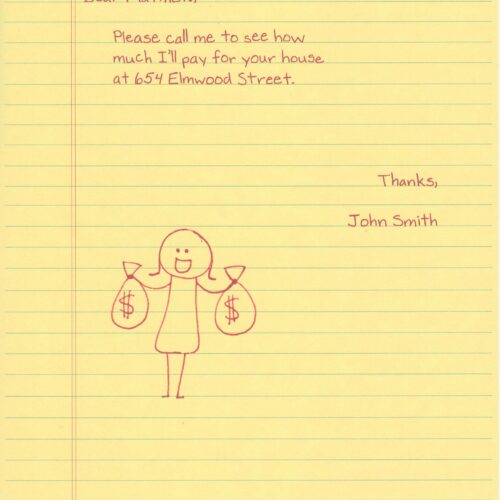 Please call me to see how
much I'll pay for your house
at 654 Elmwood Street.
Thanks,
John Smith
$ $